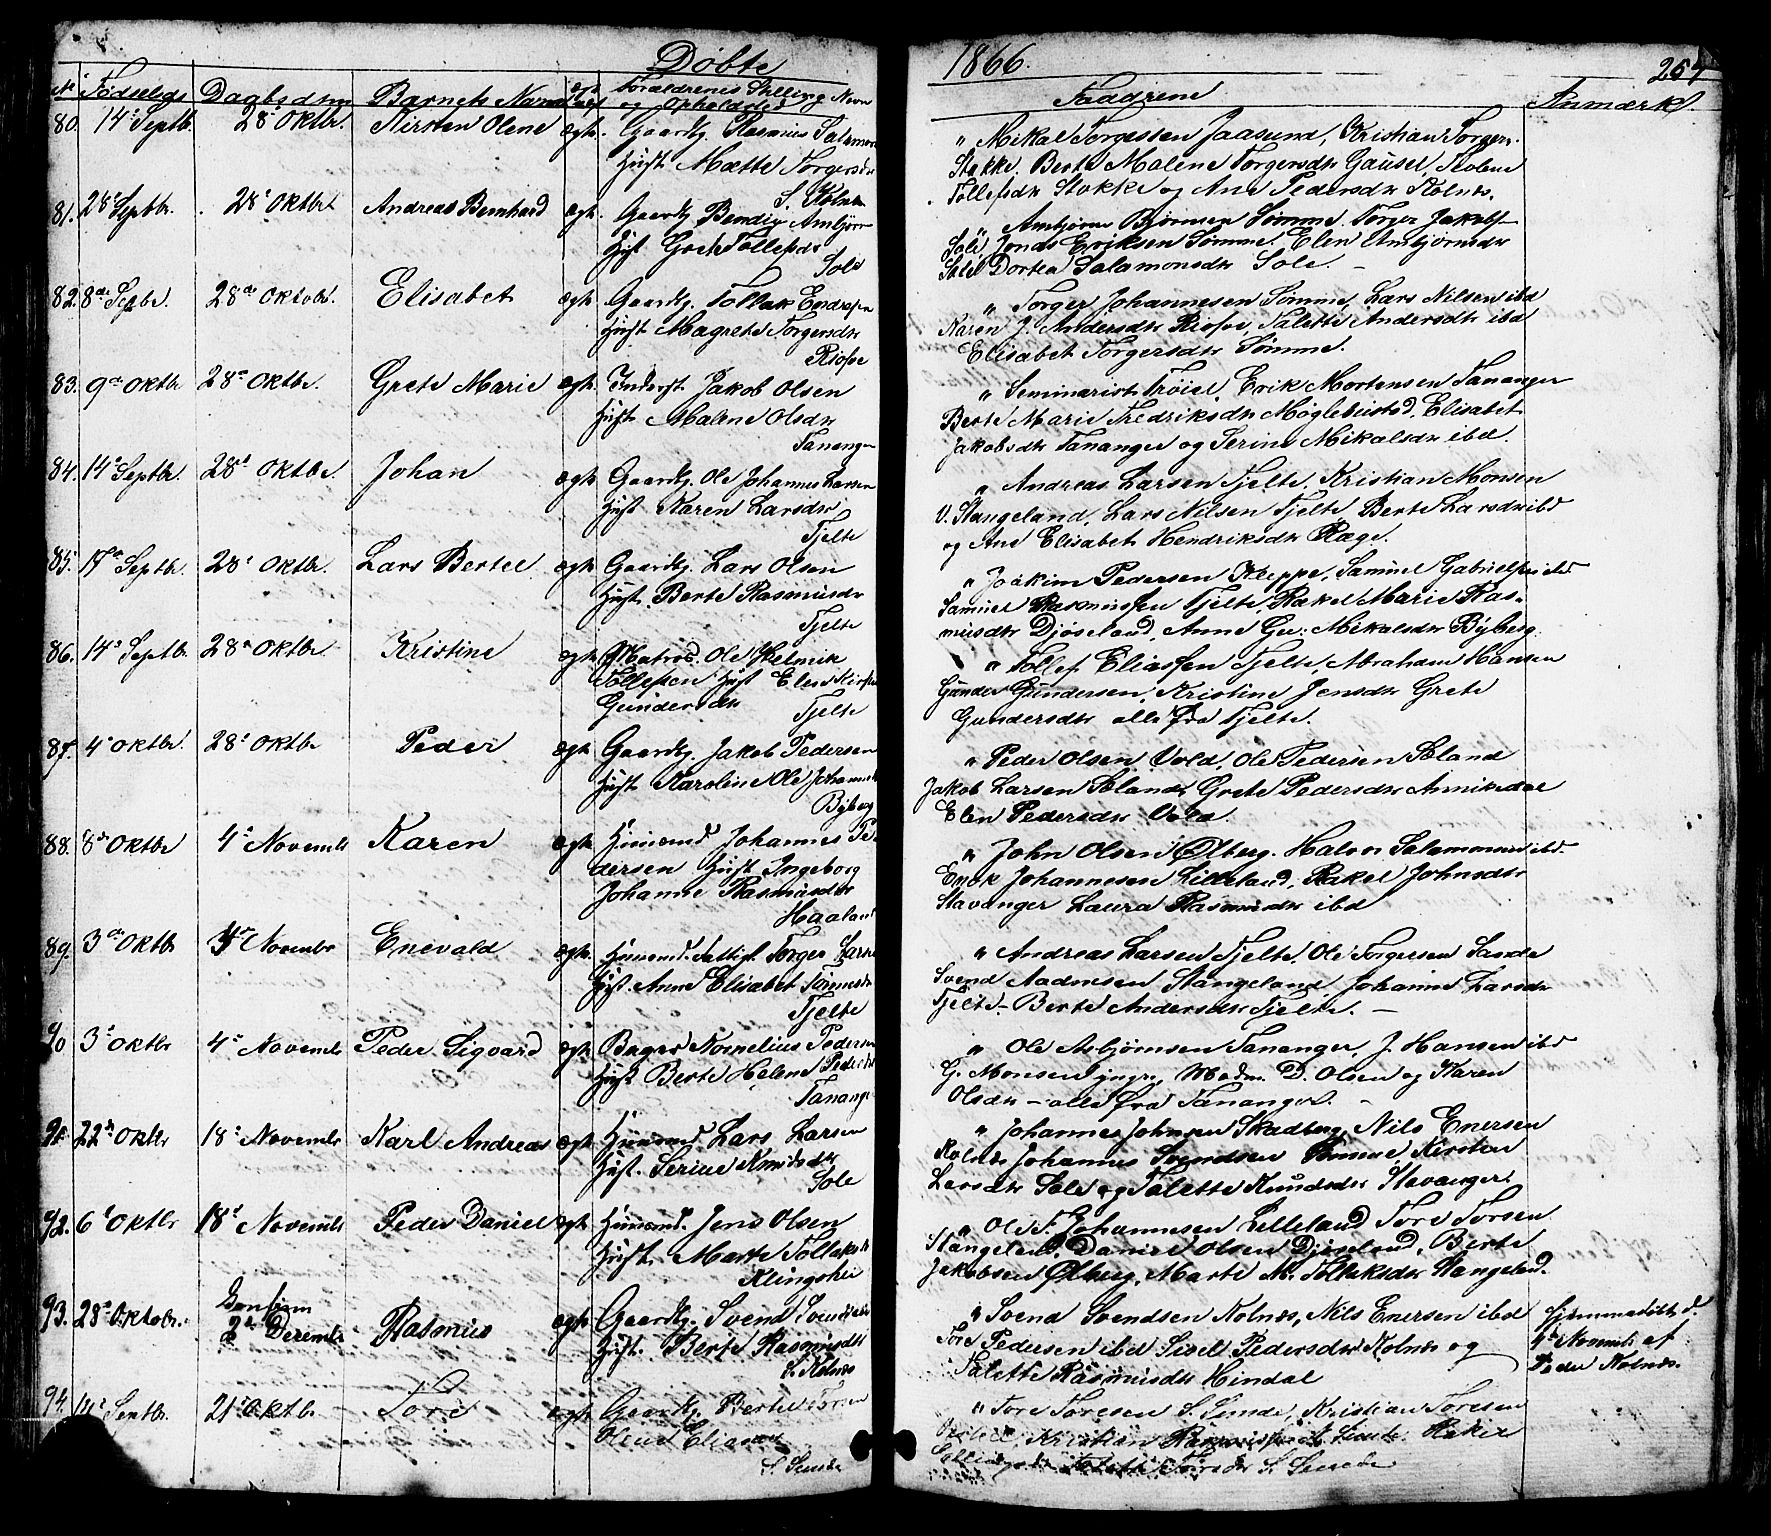 Døbte
1866.
No Fødselsds Dagbdsm Barnets Navn Forældrenes Stilling Navn
og Opholdsted
Faddrene Anmærk
80. 14d Septb. 28d Oktbr. Kirsten Olene ægte Gaardbg. Rasmus Salamon
Hust. Mætte Torgersdr
S. Kolnes
" Mikal Torgessen Jaasund, Kristian Torgers.
Stokke, Berte Malene Torgersdr Gausel,
Tollefsdr Stokke og Ane Pedersdr Kolnes.
81. 28d Septbr. 28d Oktbr Andreas Bernhard ægte Gaardbg Bendig Ambjørn
Hust Grete Tollefsdr
Sole
" Ambjørn Bjørnsen Sømme, Torger Jakobs
Sole Jonas Eriksen Sømme. Elen Ambjørnsdr
Sole Dortea Salamonsdr Sole.
82. 8de Septbr. 28de Oktobr. Elisabet ægte Gaardbg. Tollak Endresen
Hust. Magrete Torgersdr
Risfoe
" Torger Johannesen Sømme, Lars Nilsen ibd
Karen J. Andersdr Risfoe, Talette Andersdr ibd
Elisabet Torgersdr Sømme.
83. 9de Oktbr 28de Oktbr. Grete Marie ægte Inderst Jakob Olsen
Hust. Malene Olsdr
Tananger
" Seminarist Trøiel, Erik Mortensen Tananger
Berte Marie Fredriksdr Møglebustad, Elisabet
Jakobsdr Tananger og Serine Mikalsdr ibd.
84. 14d Septbr 28d Oktbr Johan ægte Gaardbg. Ole Johannes Larsen
Hust Karen Larsdr
Tjelte
" Andreas Larsen Tjelte, Kristian Monsen
V. Stangeland, Lars Nilsen Tjelte Berte Larsdr ibd
og Ane Elisabet Hendriksdr Ræge.
85. 17de Septbr. 28d Oktbr. Lars Bertel ægte Gaardbg. Lars Olsen
Hust. Berte Rasmusdr
Tjelte
" Joakim Pedersen Kleppe, Samuel Gabrielsen ibd.
Samuel Rasmussen Tjelte, Rakel Marie Ras-
musdr Djøseland, Anne Gu. Mikalsdr Byberg
86. 14d Septbr 28de Oktbr Kristine ægte Matros. Ole Helmik
Tollefsen Hust Elen
Gundersdr Tjelte
" Tollef Eliassen Tjelte, Abraham Hansen
Gunder Gundersen, Kristine Jensdr Grete
Gundersdr alle fra Tjelte.
87. 4d Oktbr. 28d Oktbr Peder ægte Gaardbg. Jakob Pedersen
Hust. Karoline Ole Johannes
Byberg
" Peder Olsen Vold, Ole Pedersen Soland
Jakob Larsen Soland, Grete Pedersdr Anniksdal
Elen Pedersdr Vold
88. 8de Oktbr 4d Novembr Karen ægte Husmand Johannes Pe-
dersen Hust Ingeborg
Johanne Rasmusdr
Haaland
" John Olsen Ølberg. Halvor Salamonsen ibd.
Enok Johannesen Lilleland, Rakel Johnsdr
Stavanger Laura Rasmusdr ibd
89. 3de Oktbr 4de Novembr Enevald ægte Husmand. Fattigl. Torger Larsen
Hust. Anne Elisabet Tønnesdr
Tjelte
" Andreas Larsen Tjelte, Ole Torgersen Sande
Svend Aadnesen Stangeland Johanne Larsdr
Tjelte. Berte Andersdr Tjelte.
90 3d Oktbr 4de Novembr Peder Sigvard ægte Bager Kornelius Pedersen
Hust. Berte Helene Pedersdr
Tananger
" Ole Asbjørnsen Tananger, J. Hansen ibd
G. Monsen yngr., Madm. D. Olsen og Karen
Olsdr - alle fra Tananger.
91. 22de Oktbr 18d Novembr Karl Andreas ægte Husmand Lars Larsen
Hust. Serine Knudsdr
Sole
" Johannes Johnsen Skadberg, Nils Enersen
Kolnes Johannes Svendsen Kirsten
Larsdr Sole og Talette Knudsdr Stavanger
92. 6d Oktbr 18d Novembr Peder Daniel ægte Husmand. Jens Olsen
Hust. Marte Tollaksdr
Klingshei
" Ole T. Johannesen Lilleland Tore Torsen
Stangeland, Daniel Olsen Djøseland, Berte
Jakobsen Ølberg, Marte M. Tollaksdr Stangeland.
93. 28de Oktobr. 2d Decembr Rasmus ægte Gaardbg. Svend Svendsen
Hust. Berte Rasmusdr
S. Kolnes
" Svend Svendsen Kolnes, Nils Enersen ibd
Tore Pedersen ibd Sisel Pedersdr Kolnes og
Talette Rasmusdr Hindal
Hjemmedøbt d.
4de Novemb. af
Peder Kolnes.
94. 14d Septbr. 21d Oktbr Tore ægte Gaardbg. Bertel Torsen
Olene Eliasen
S. Sunde
" Tore Toresen S. Sunde, Kristian Toresen
Kristian Rasmussen S. Sunde. Rakel
Talette Toresdr S. Sunde